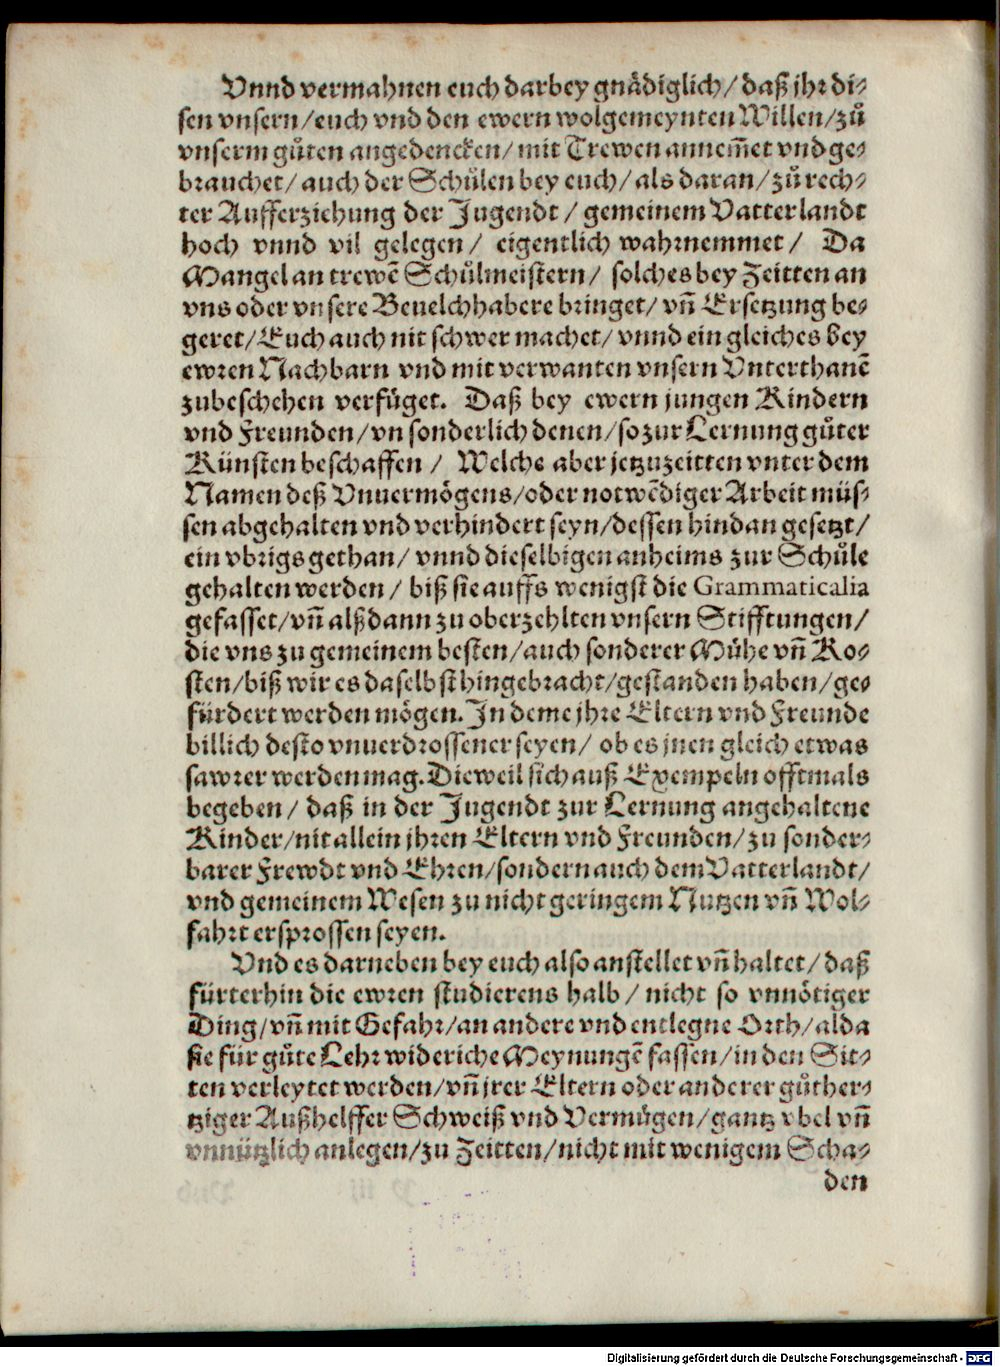 Vnnd vermahnen euch darbey gnådiglich/ daß jhr di⸗
sen vnsern/ euch vnd den ewern wolgemeynten Willen/ zů
vnserm gůten angedencken/ mit Trewen annem̃et vnd ge⸗
brauchet/ auch der Schůlen bey euch/ als daran/ zů rech⸗
ter Aufferziehung der Jugendt/ gemeinem Vatterlandt
hoch vnnd vil gelegen/ eigentlich wahrnemmet/ Da
Mangel an trewẽ Schůlmeistern/ solches bey Zeitten an
vns oder vnsere Beuelchhabere bringet/ vñ Ersetzung be⸗
geret/ Euch auch nit schwer machet/ vnnd ein gleiches bey
ewren Nachbarn vnd mit verwanten vnsern Vnterthanẽ
zubeschehen verfüget. Daß bey ewern jungen Kindern
vnd Freunden/ vn sonderlich denen/ so zur Lernung gůter
Künsten beschaffen/ Welche aber jetzuzeitten vnter dem
Namen deß Vnuermögens/ oder notwẽdiger Arbeit müs⸗
sen abgehalten vnd verhindert seyn/ dessen hindan gesetzt/
ein vbrigs gethan/ vnnd dieselbigen anheims zur Schůle
gehalten werden/ biß sie auffs wenigst die Grammaticalia
gefasset/ vñ alßdann zu oberzehlten vnsern Stifftungen/
die vns zu gemeinem besten/ auch sonderer Mühe vñ Ko⸗
sten/ biß wir es daselbst hingebracht/ gestanden haben/ ge⸗
fürdert werden mögen. In deme jhre Eltern vnd Freunde
billich desto vnuerdrossener seyen/ ob es jnen gleich etwas
sawrer werden mag. Dieweil sich auß Exempeln offtmals
begeben/ daß in der Jugendt zur Lernung angehaltene
Kinder/ nit allein jhren Eltern vnd Freunden/ zu sonder⸗
barer Frewdt vnd Ehren/ sondern auch dem Vatterlandt/
vnd gemeinem Wesen zu nicht geringem Nutzen vñ Wol⸗
fahrt ersprossen seyen.
Vnd es darneben bey euch also anstellet vñ haltet/ daß
fürterhin die ewren studierens halb/ nicht so vnnötiger
Ding/ vñ mit Gefahr/ an andere vnd entlegne Orth/ alda
sie für gůte Lehr wideriche Meynungẽ fassen/ in den Sit⸗
ten verleytet werden/ vñ jrer Eltern oder anderer gůther⸗
tziger Außhelffer Schweiß vnd Vermůgen/ gantz vbel vñ
vnnützlich anlegen/ zu Zeitten/ nicht mit wenigem Scha⸗
den
Digitalisierung gefördert durch die Deutsche Forschungsgemeinschaft - DFG